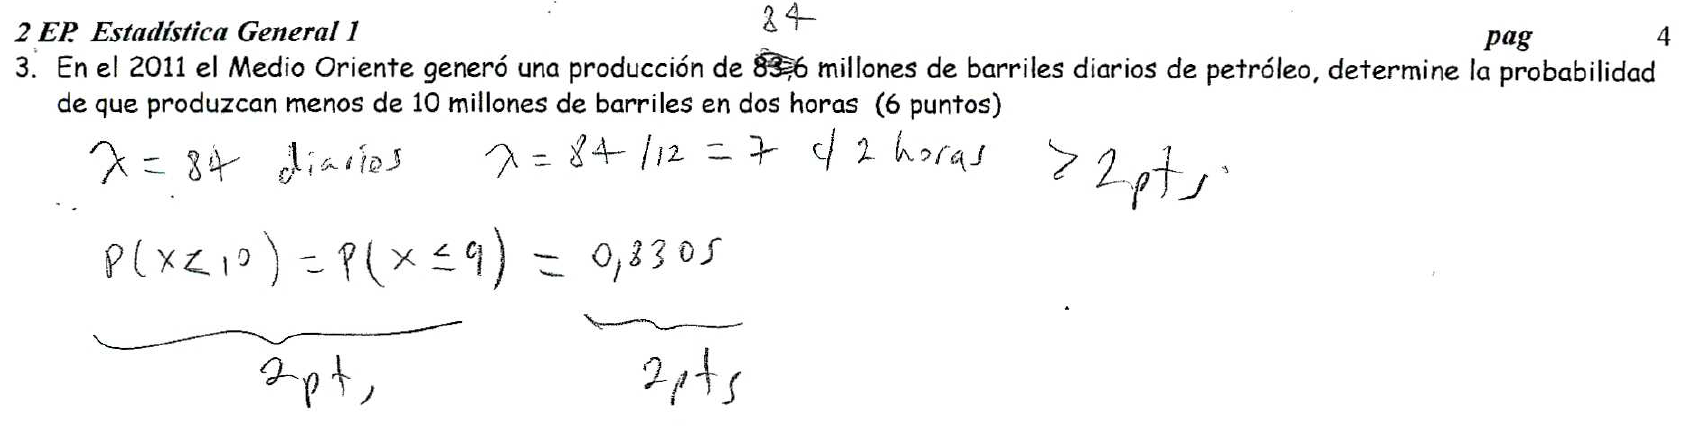 84
2 EP. Estadística General 1 pag 4
3. En el 2011 el Medio Oriente generó una producción de 83,6 millones de barriles diarios de petróleo, determine la probabilidad
de que produzcan menos de 10 millones de barriles en dos horas (6 puntos)
λ = 84 diarios λ = 84/12 = 7 c/ 2 horas > 2pts.
P(X<10) = P(X≤9) = 0,8305
2pts 2pts